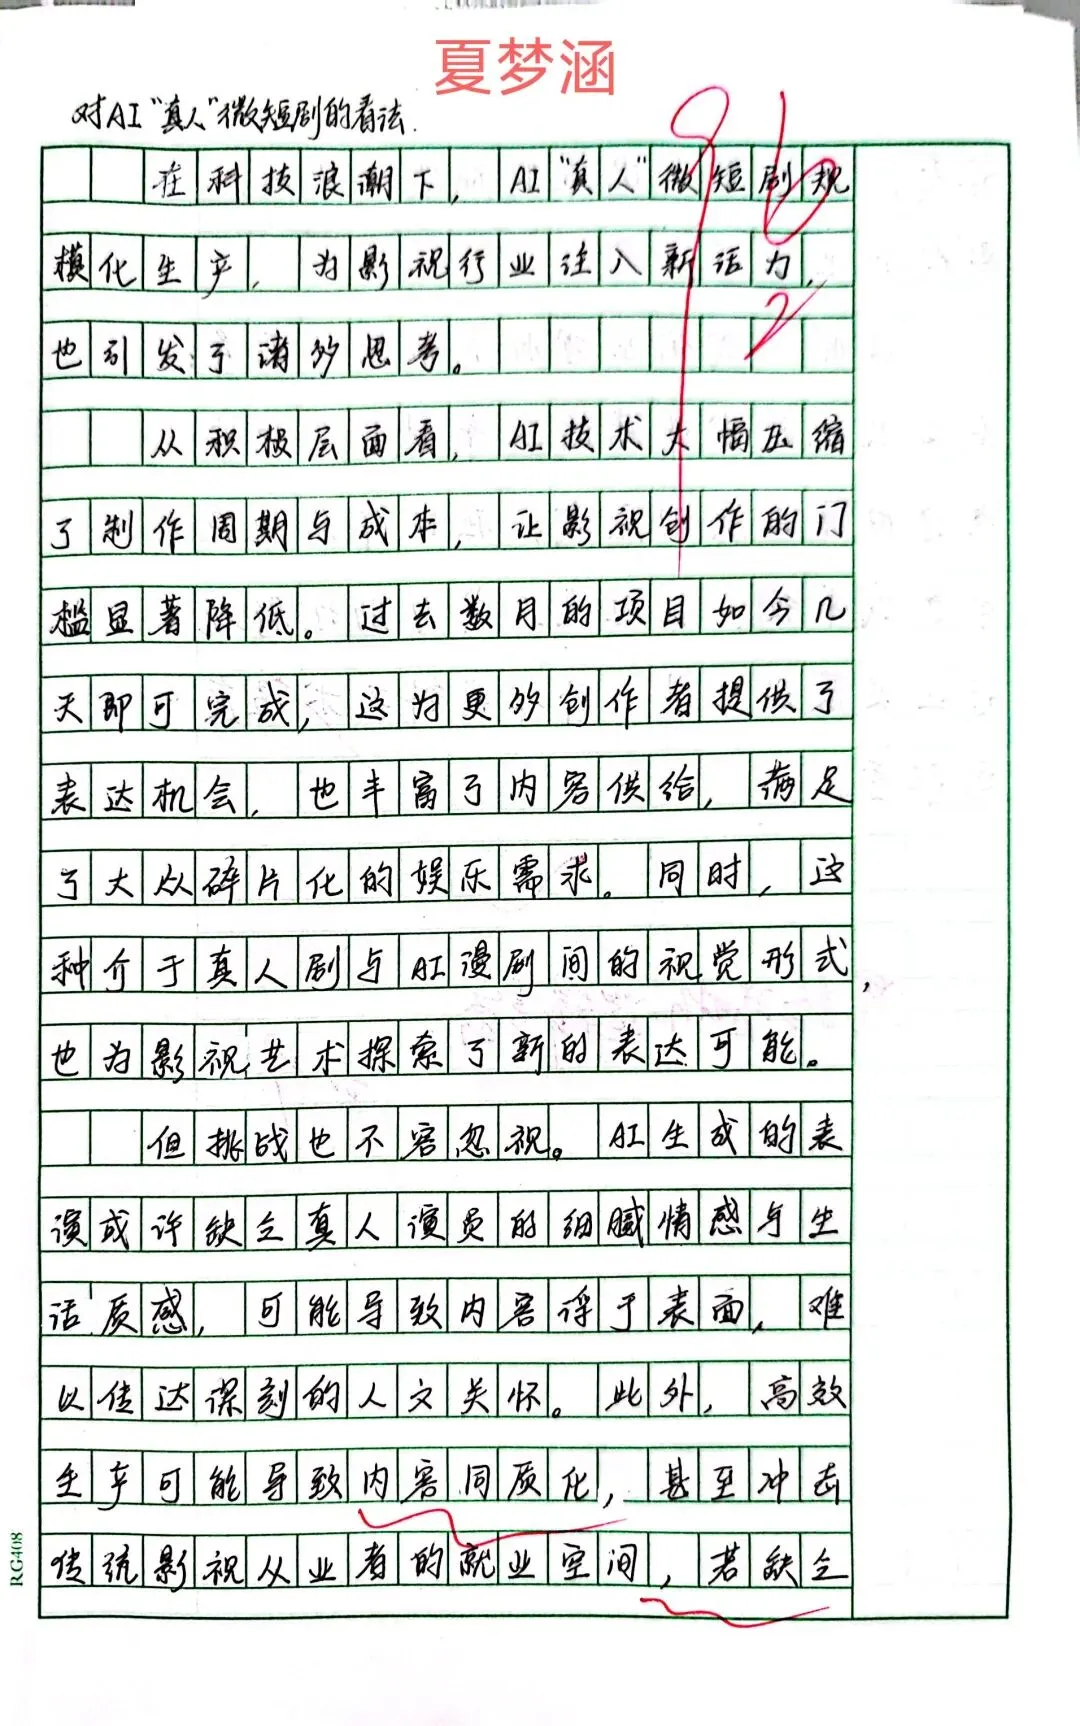 夏梦涵
对AI"真人"微短剧的看法
96
2
在科技浪潮下，AI"真人"微短剧规
模化生产，为影视行业注入新活力，
也引发了诸多思考。
从积极层面看，AI技术大幅压缩
了制作周期与成本，让影视创作的门
槛显著降低。过去数月的项目如今几
天即可完成，这为更多创作者提供了
表达机会，也丰富了内容供给，满足
了大众碎片化的娱乐需求。同时，这
种介于真人剧与AI漫剧间的视觉形式，
也为影视艺术探索了新的表达可能。
但挑战也不容忽视。AI生成的表
演或许缺乏真人演员的细腻情感与生
活质感，可能导致内容浮于表面，难
以传达深刻的人文关怀。此外，高效
生产可能导致内容同质化，甚至冲击
传统影视从业者的就业空间，若缺乏
RG408